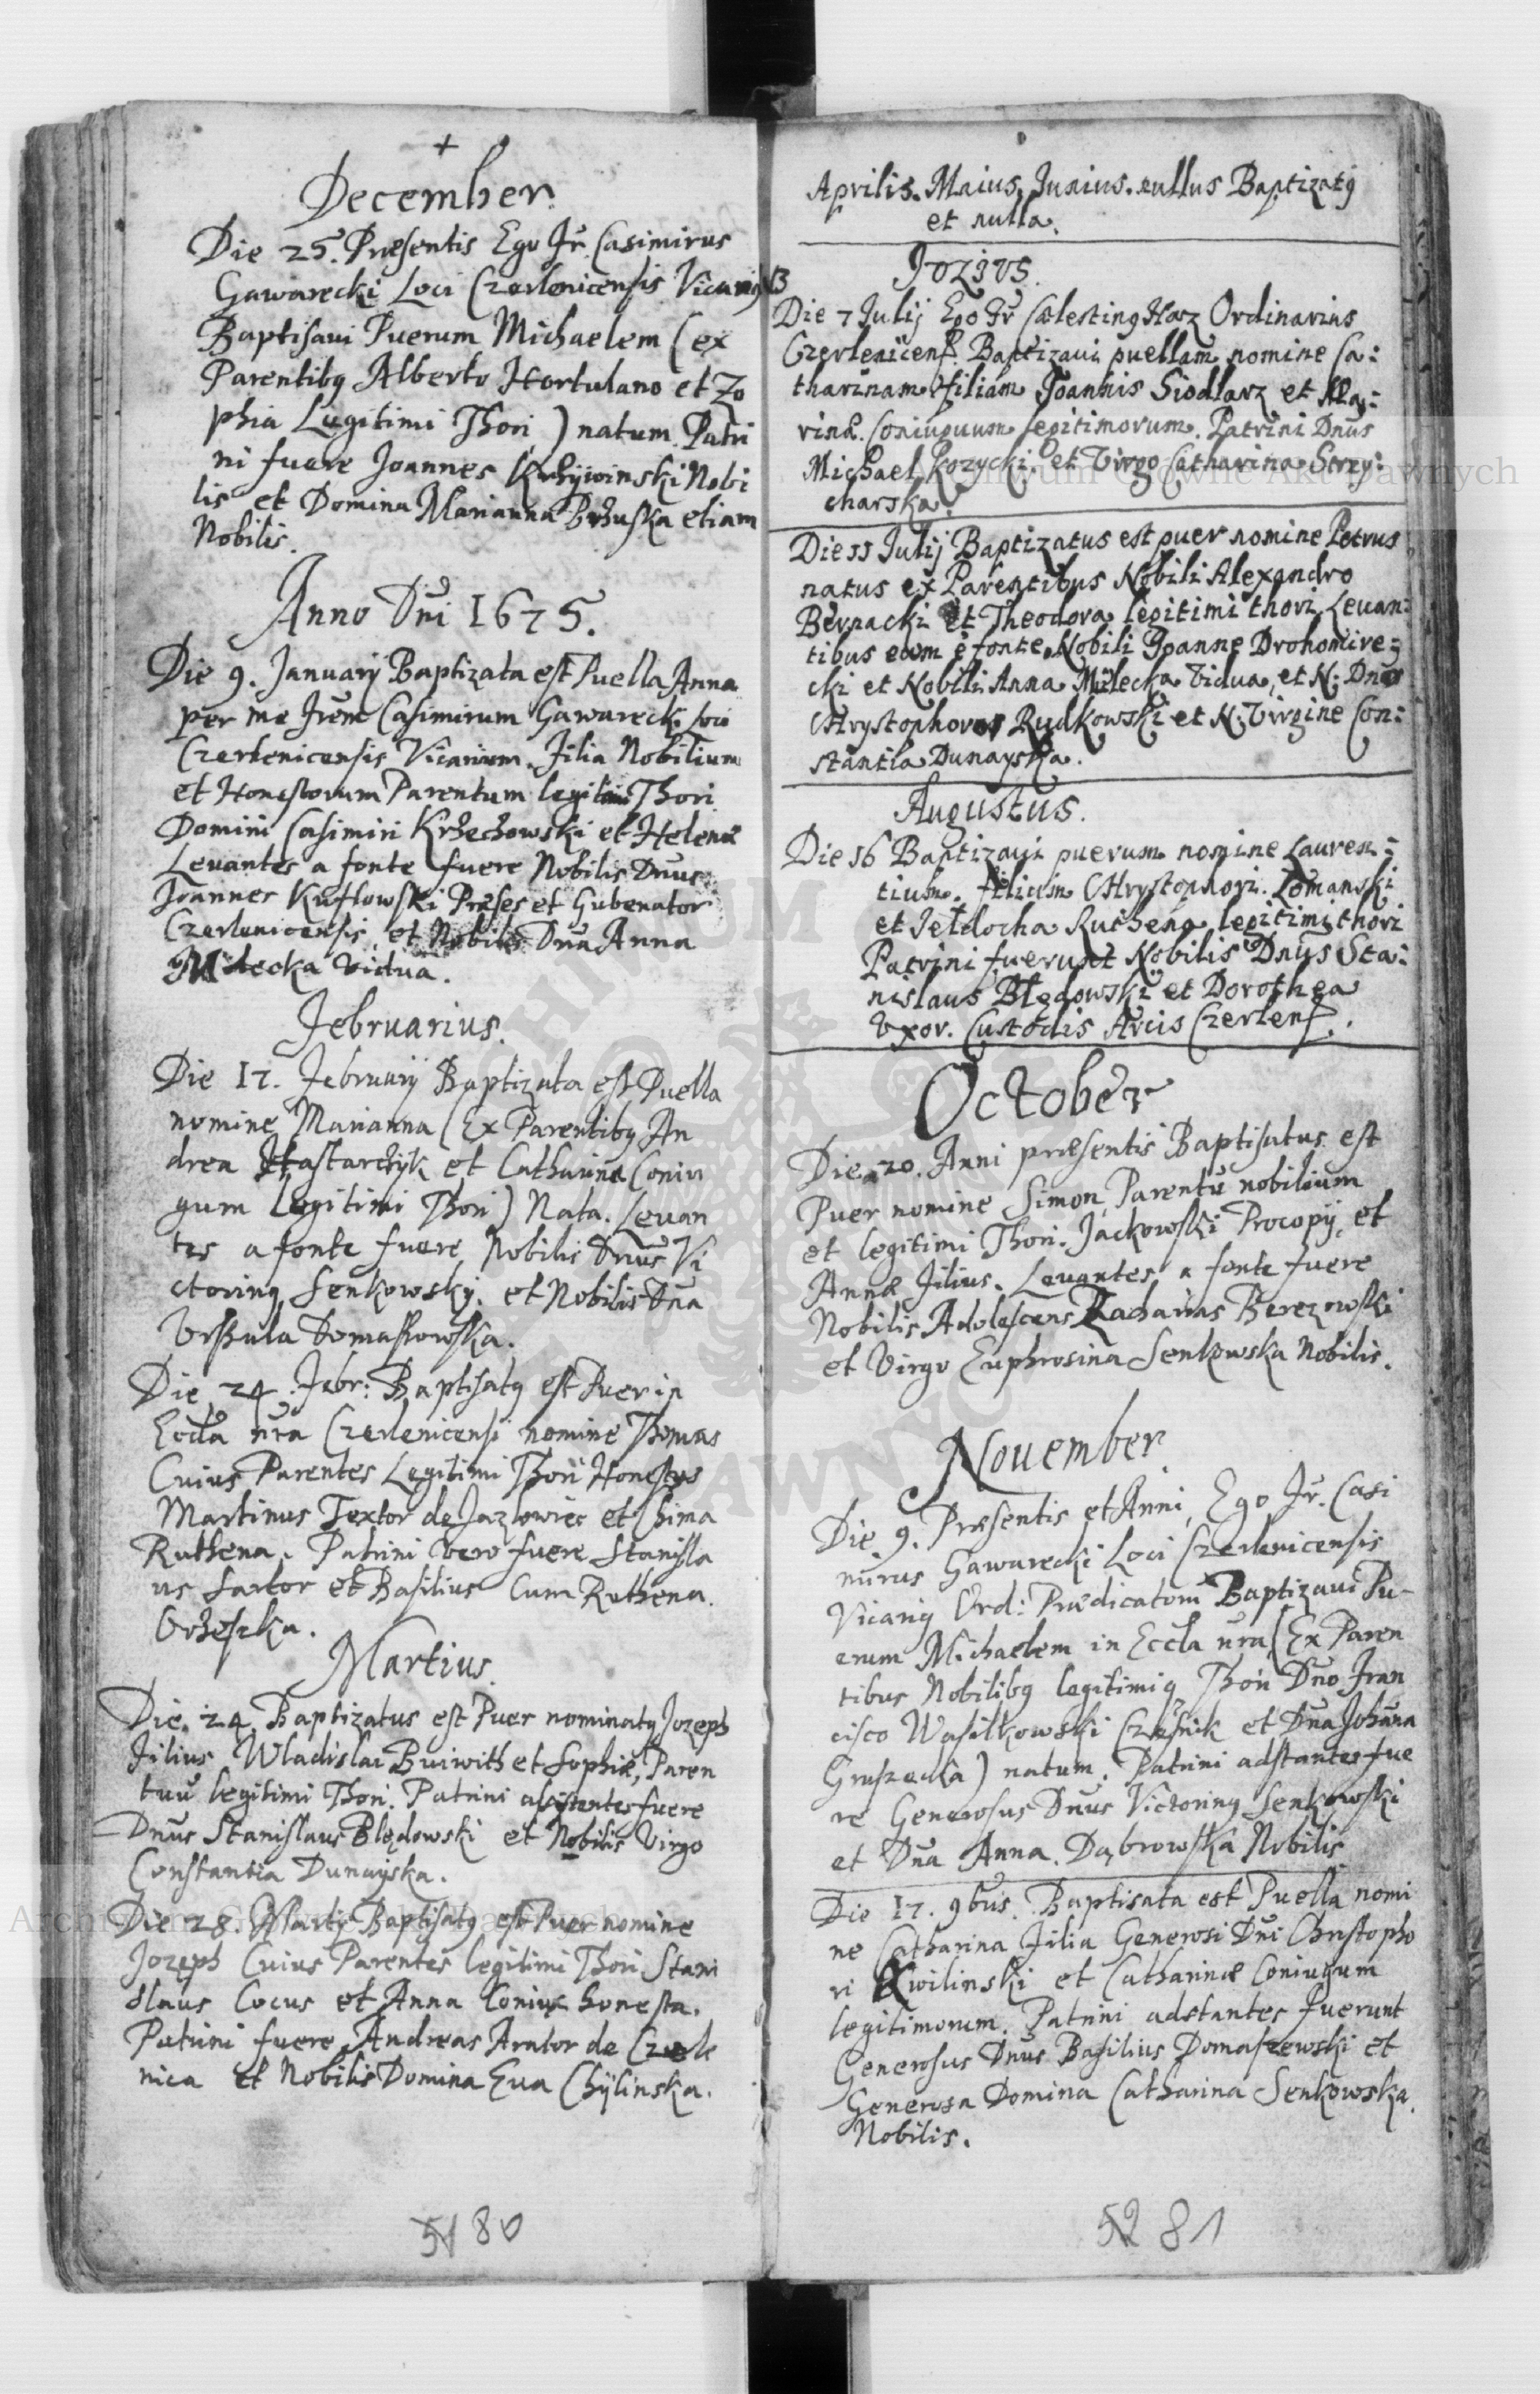 December
Die 25. Præsentis Ego Fr. Casimirus
Gawarecki Loci Czerlenicensis Vicariꝰ
Baptisavi Puerum Michaelem (ex
Parentibꝰ Alberto Hortulano et Zo
phia Legitimi Thori) natum. Patri
ni fuere Joannes Krżywinski Nobi
lis et Domina Marianna Brżuska etiam
Nobilis.
Anno Dni 1675.
Die 9. January Baptizata est Puella Anna
per me Frem Casimirum Gawarecki loci
Czerlenicensis Vicarium. Filia Nobilium
et Honestorum Parentum legitimi Thori
Domini Casimiri Krżechowski et Helenæ
Levantes a fonte fuere Nobilis Dnus
Joannes Kuflowski Præses et Gubenator
Czerlenicensis, et Nobilis Dna Anna
Milecka Vidua.
Februarius.
Die 17. February Baptizata est Puella
nomine Marianna (Ex Parentibꝰ An
drea Hastarczyk et Catharina Coniu
gum Legitimi Thori) Nata. Levan
tes a fonte fuere Nobilis Dnus Vi
ctorinꝰ Senkowsky. et Nobilis Dna
Urszula Domaszowska.
Die 24 Febr: Baptisatꝰ est Puer in
Eccla nra Czerlenicensi nomine Thomas
Cuius Parentes Legitimi Thori Honestus
Martinus Textor de Jazlowiec et Chima
Ruthena. Patrini vero fuere Stanisla
us Sartor et Basilius Cum Ruthena.
Orżeszka.
Martius.
Die. 24. Baptizatus est Puer nominatꝰ Jozeph
Filius Wladislai Buiwith et Sophiæ, Paren
tuu legitimi Thori. Patrini assistentes fuere
Dnus Stanislaus Blędowski et Nobilis Virgo
Constantia Dunayska.
Die 28. Marty Baptisatꝰ est Puer nomine
Jozeph Cuius Parentes legitimi Thori Stani
slaus Cocus et Anna Coniux honesta.
Patrini fuere Andreas Arator de Czerle
nica et Nobilis Domina Eva Chylinska.
51 80
Aprilis. Maius, Junius. nullus Baptizatꝰ
et nulla.
JULIUS.
Die 7 Julij Ego Fr Cælestinꝰ Harz Ordinarius
Czerlenicens. Baptizavi puellam nomine Ca:
tharinam filiam Joannis Siodlarz et Ma:
rinæ. Coniuguum legitimorum. Patrini Dnus
Michael Kozycki et Virgo Catharina Strzy:
charska.
Die 11 Julij Baptizatus est puer nomine Petrus
natus ex Parentibus Nobili Alexandro
Bernacki et Theodora legitimi thori Levan:
tibus eum e fonte Nobili Joanne Drohomire:
cki et Nobili Anna Milecka Vidua, et N. Dnus
Chrystophorus Rudkowski et N. Virgine Con:
stantia Dunayska.
Augustus.
Die 16 Baptizavi puerum nomine Lauren:
tium. filium Chrystophori. Lomanski
et Fetdocha Ruthena legitimi thori
Patrini fuerunt Nobilis Dnus Sta:
nislaus Blędowski et Dorothea
Uxor. Custodis Arcis Czerlens.
October
Die 20. Anni præsentis Baptisatus est
Puer nomine Simon, Parentū nobilium
et legitimi Thori. Jackowski Procopÿ, et
Annæ Filius. Levantes a fonte fuere
Nobilis Adolescens Zacharias Berezowski
et Virgo Euphrosina Senkowska Nobilis.
November
Die 9. Præsentis et Anni, Ego Fr. Casi
mirus Gawarecki Loci Czerlenicensis
Vicariꝰ Ord: Prædicatorū Baptizavi Pu-
erum Michaelem in Eccla nra (Ex Paren
tibus Nobilibꝰ legitimiꝗ Thori Dno Fran
cisco Wasilkowski Czesnik et Dna Johāna
Gruszecka) natum. Patrini adstantes fue
re Generosus Dnus Victorinꝰ Senkowski
et Dna Anna. Dąbrowska Nobilis
Die 17. 9bus. Baptisata est Puella nomi
ne Catharina Filia Generosi Dni Christopho
ri Kwilinski et Catharinæ Coniugum
legitimorum. Patrini adstantes fuerunt
Generosus Dnus Basilius Domaszewski et
Generosa Domina Catharina Senkowska
Nobilis.
52 81